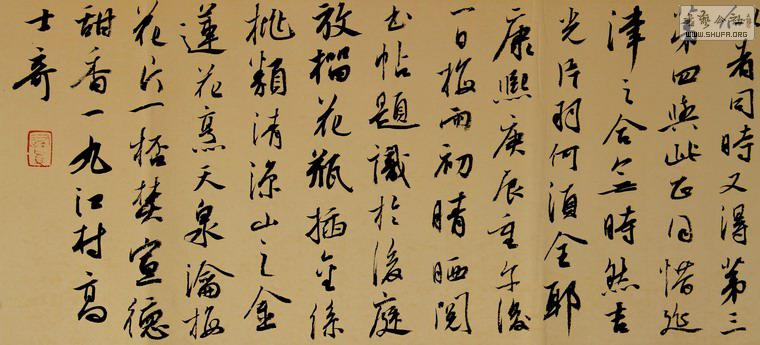 者同時又得第三
第四與此正同惜延
津之合無時然吉
光片羽何須全耶
康熙庚辰重午後
一日梅雨初晴晒閱
書帖題識於後庭
放榴花瓶插金絲
桃類清涼山之金
蓮花烹天泉瀹梅
花片一桮焚宣德
甜香一丸江村高
士奇
WWW.SHUFA.ORG